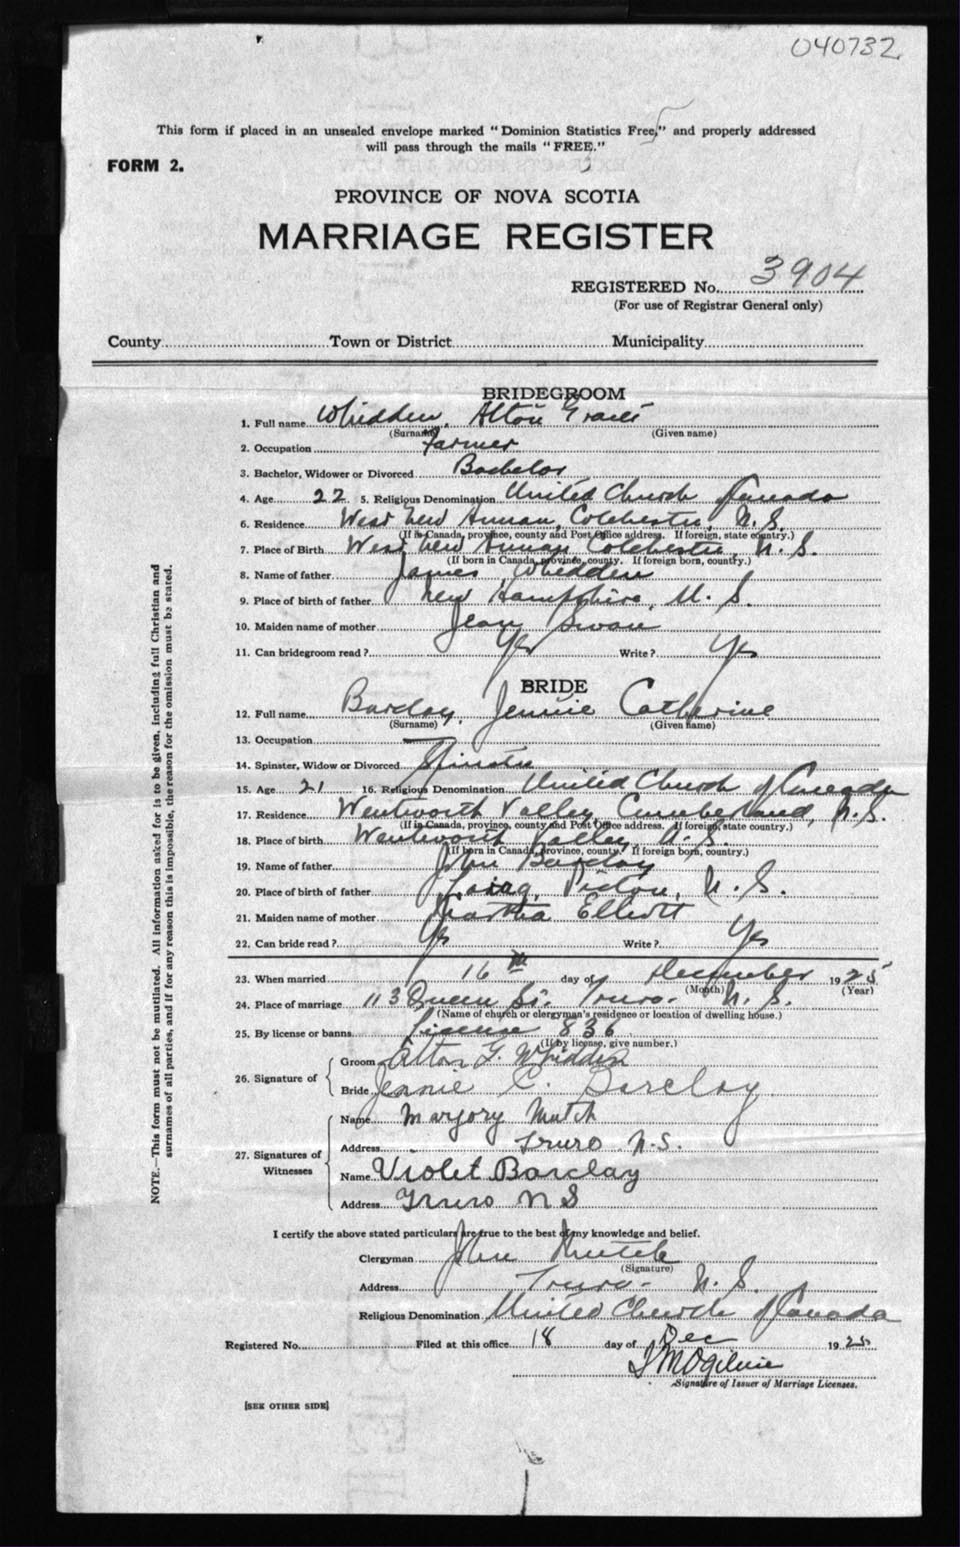 040732
This form if placed in an unsealed envelope marked "Dominion Statistics Free," and properly addressed
will pass through the mails "FREE."
FORM 2.
PROVINCE OF NOVA SCOTIA
MARRIAGE REGISTER
REGISTERED No. 3904
(For use of Registrar General only)
County Town or District Municipality
BRIDEGROOM
1. Full name Whidden, Alton
(Surname) (Given name)
2. Occupation Farmer
3. Bachelor, Widower or Divorced Bachelor
4. Age 22 5. Religious Denomination United Church of Canada
6. Residence West New Annan, Colchester, N. S.
(If in Canada, province, county and Post Office address. If foreign, state country.)
7. Place of Birth West New Annan Colchester, N. S.
(If born in Canada, province, county. If foreign born, country.)
8. Name of father James Whidden
9. Place of birth of father New Hampshire, U. S.
10. Maiden name of mother Jean Swan
11. Can bridegroom read? Yes Write? Yes
BRIDE
12. Full name Barclay, Jennie Catherine
(Surname) (Given name)
13. Occupation
14. Spinster, Widow or Divorced Spinster
15. Age 21 16. Religious Denomination United Church of Canada
17. Residence Wentworth Valley, Cumberland, N. S.
(If in Canada, province, county and Post Office address. If foreign, state country.)
18. Place of birth Wentworth Valley, N. S.
(If born in Canada, province, county. If foreign born, country.)
19. Name of father John Barclay
20. Place of birth of father Pictou, N. S.
21. Maiden name of mother Martha Elliott
22. Can bride read? Yes Write? Yes
23. When married 16th day of December 1925
(Month) (Year)
24. Place of marriage 113 Queen St. Truro. N. S.
(Name of church or clergyman's residence or location of dwelling house.)
25. By license or banns License 836
(If by license, give number.)
26. Signature of
Groom Alton G. Whidden
Bride Jennie C. Barclay
27. Signatures of Witnesses
Name Marjory Mutch
Address Truro N.S.
Name Violet Barclay
Address Truro N S
I certify the above stated particulars are true to the best of my knowledge and belief.
Clergyman John Mutch
(Signature)
Address Truro. N. S.
Religious Denomination United Church of Canada
Registered No. Filed at this office 18 day of Dec 1925
Signature of Issuer of Marriage Licenses.
[SEE OTHER SIDE]
NOTE.—This form must not be mutilated. All information asked for is to be given, including full Christian and
surnames of all parties, and if for any reason this is impossible, the reason for the omission must be stated.